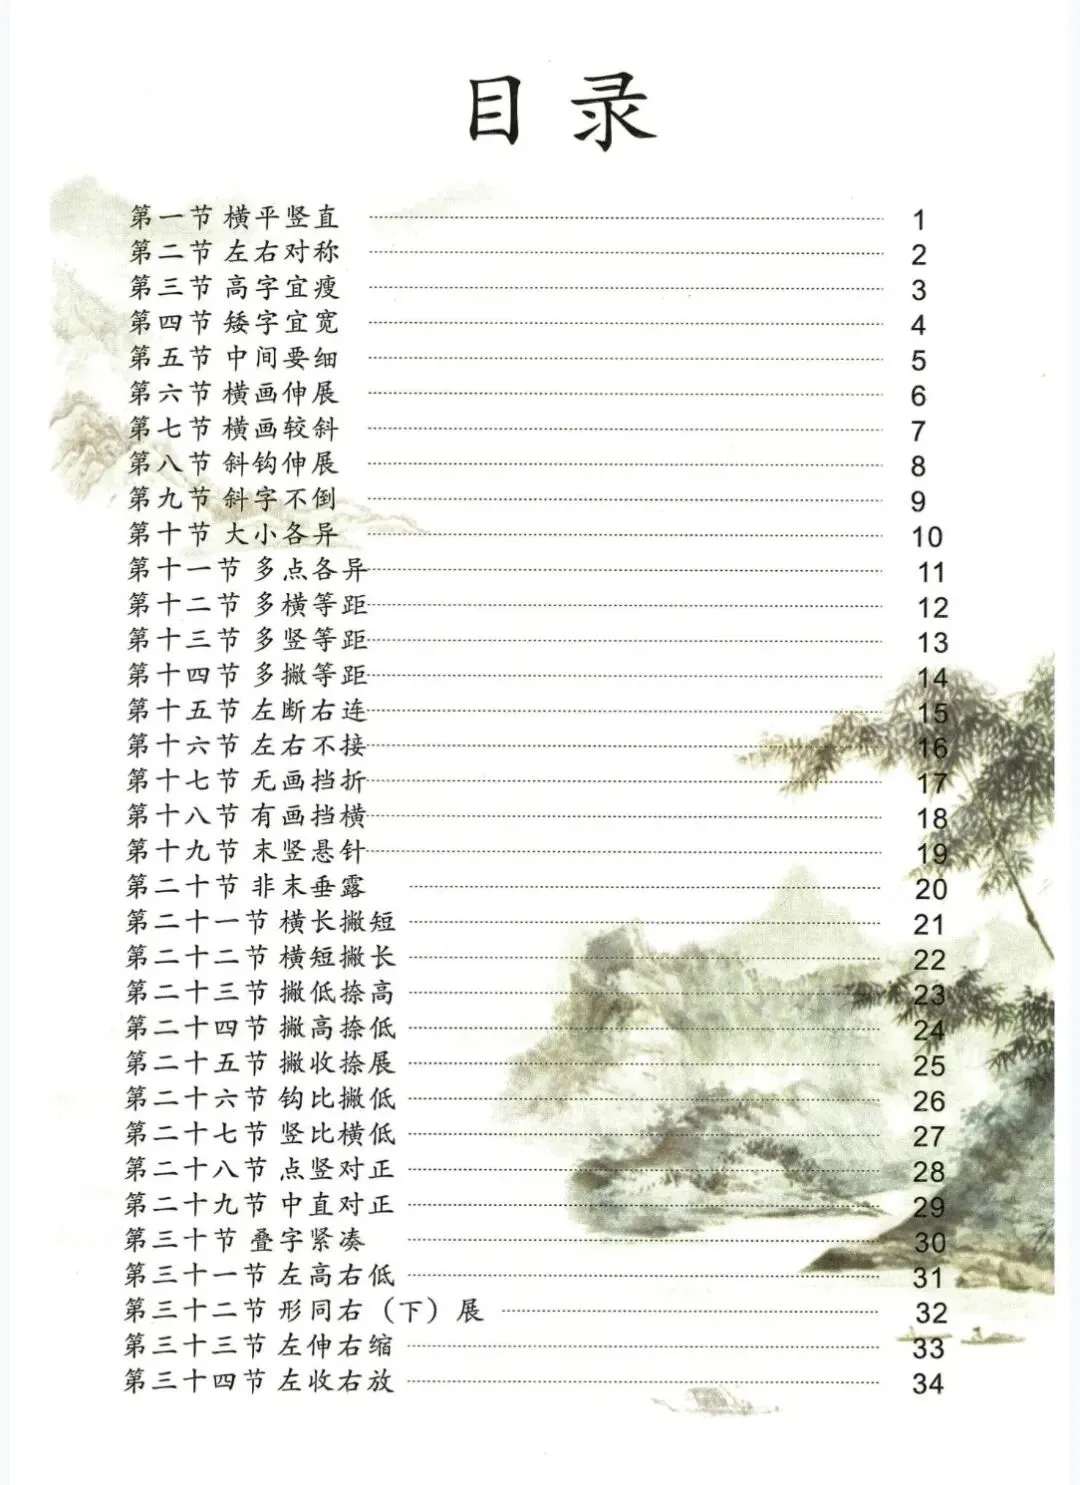 目录
第一节 横平竖直 1
第二节 左右对称 2
第三节 高字宜瘦 3
第四节 矮字宜宽 4
第五节 中间要细 5
第六节 横画伸展 6
第七节 横画较斜 7
第八节 斜钩伸展 8
第九节 斜字不倒 9
第十节 大小各异 10
第十一节 多点各异 11
第十二节 多横等距 12
第十三节 多竖等距 13
第十四节 多撇等距 14
第十五节 左断右连 15
第十六节 左右不接 16
第十七节 无画挡折 17
第十八节 有画挡横 18
第十九节 末竖悬针 19
第二十节 非末垂露 20
第二十一节 横长撇短 21
第二十二节 横短撇长 22
第二十三节 撇低捺高 23
第二十四节 撇高捺低 24
第二十五节 撇收捺展 25
第二十六节 钩比撇低 26
第二十七节 竖比横低 27
第二十八节 点竖对正 28
第二十九节 中直对正 29
第三十节 叠字紧凑 30
第三十一节 左高右低 31
第三十二节 形同右（下）展 32
第三十三节 左伸右缩 33
第三十四节 左收右放 34